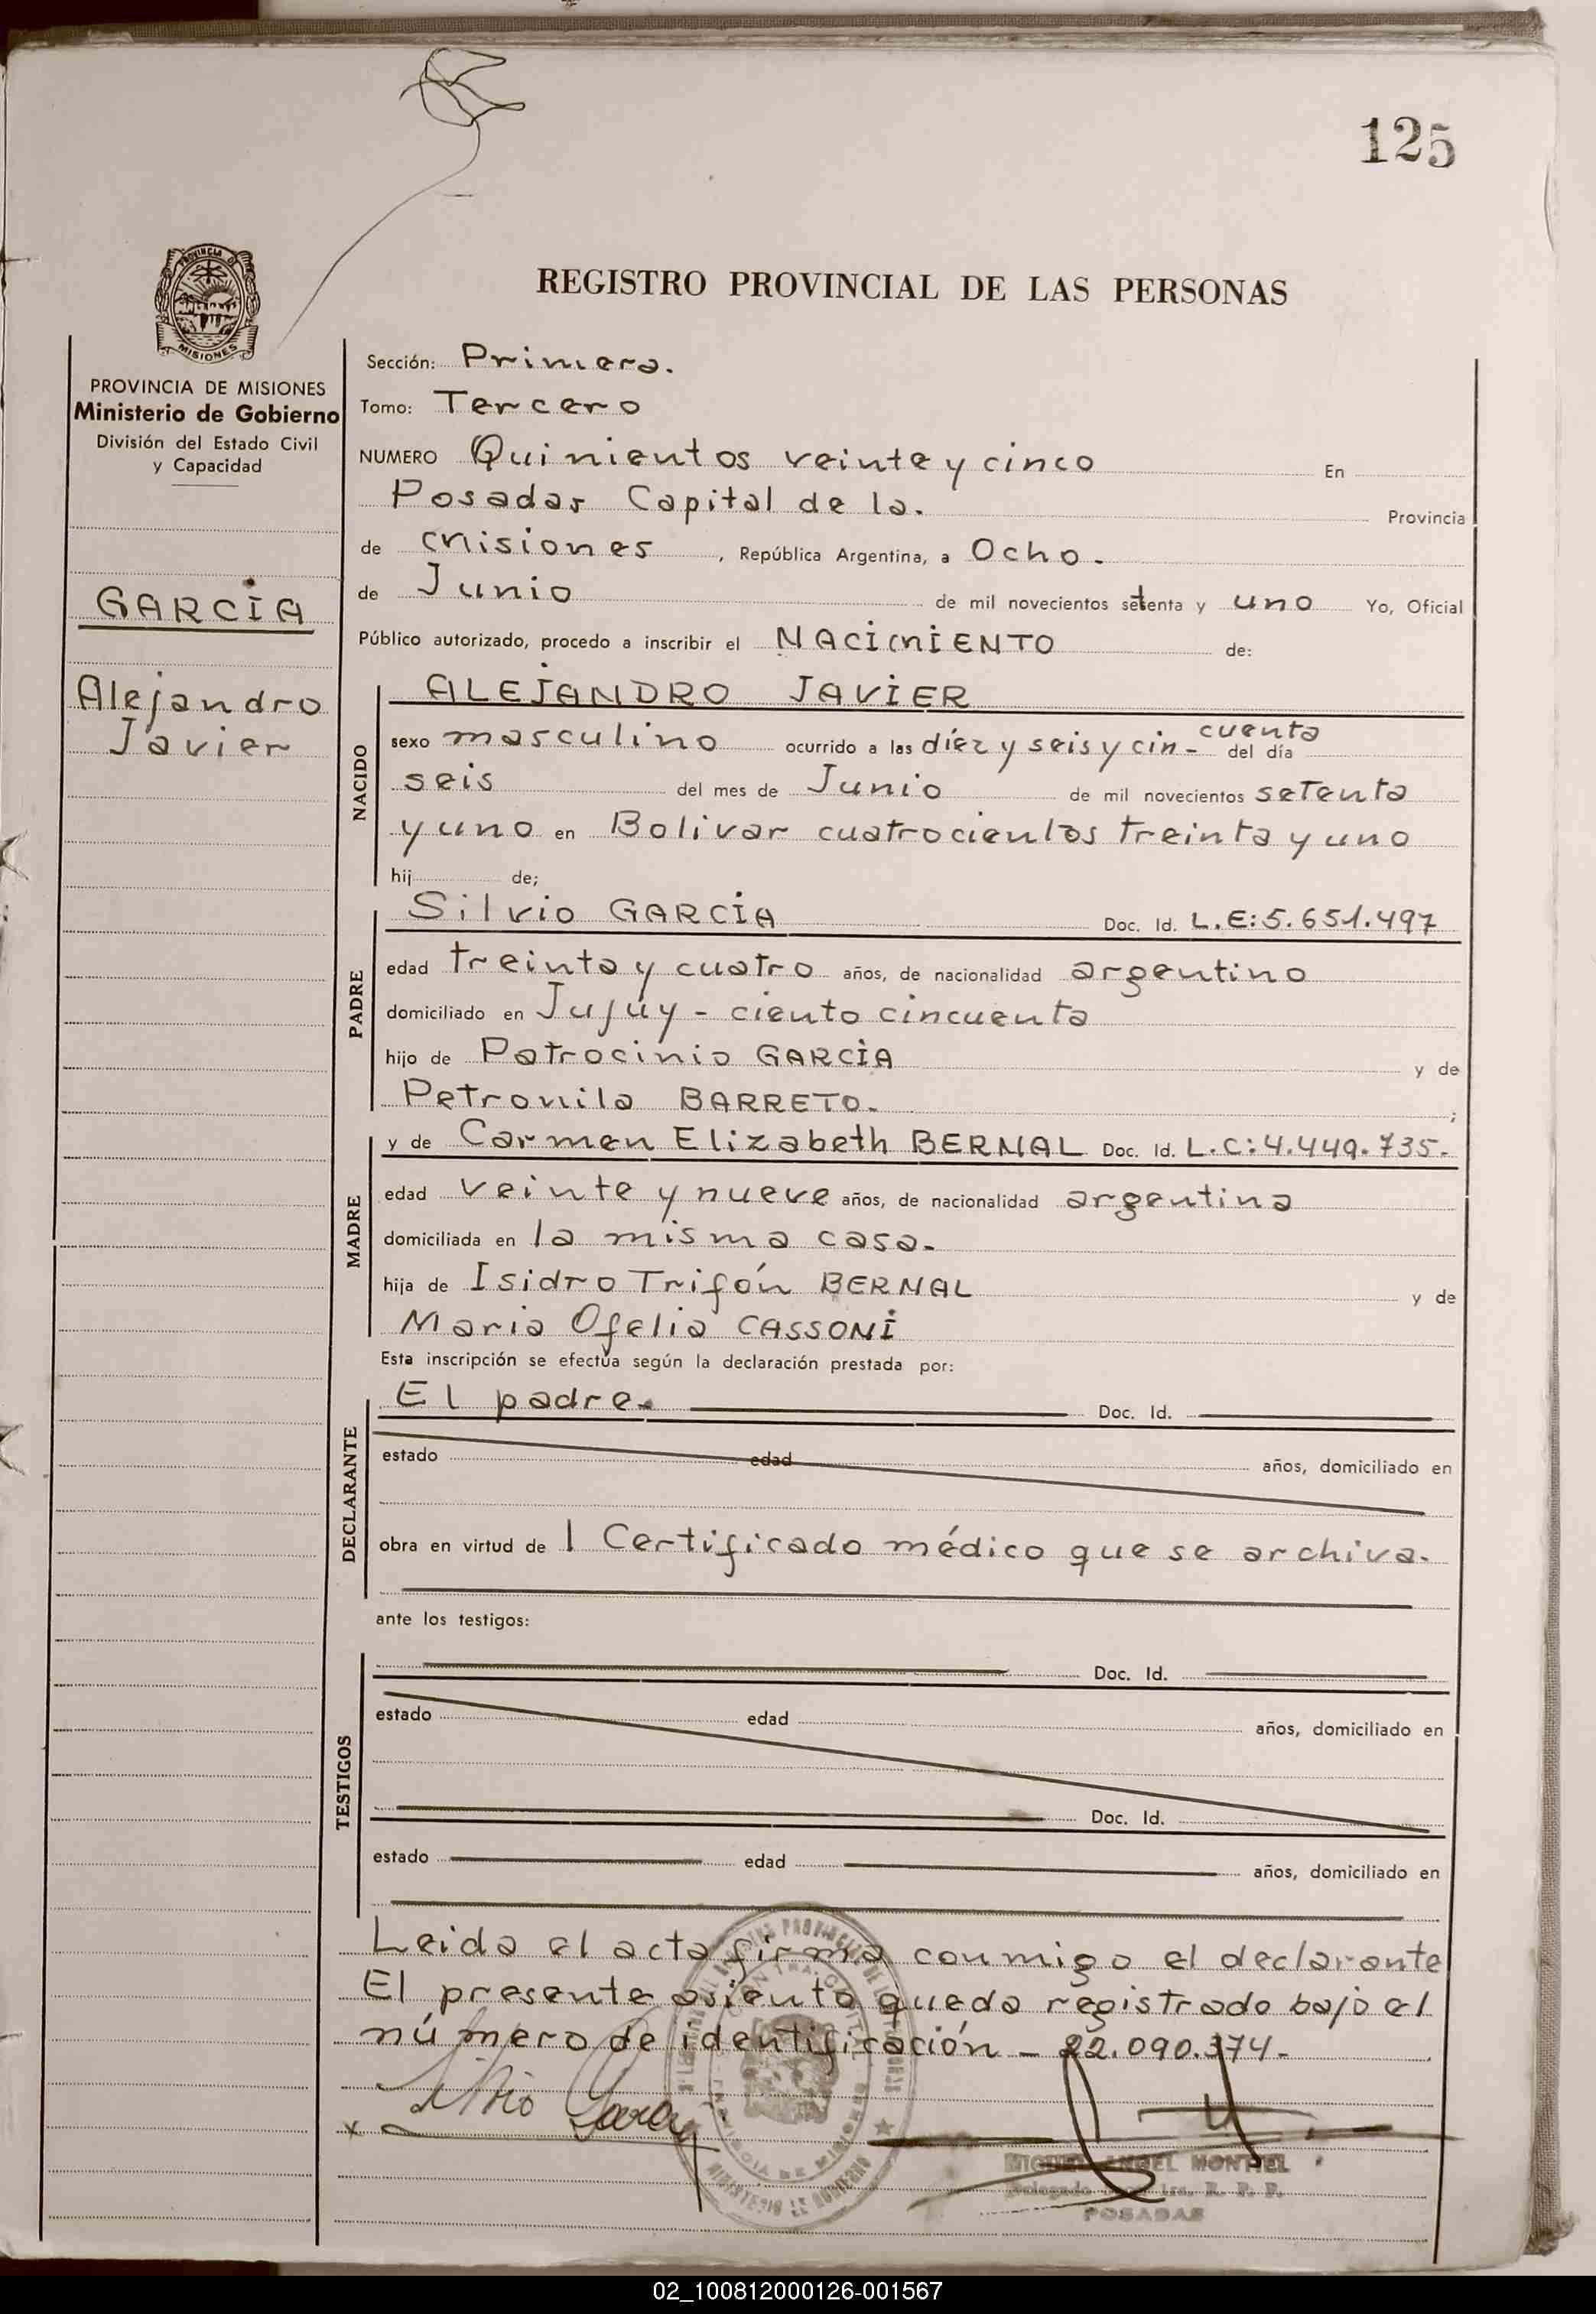 125
PROVINCIA D
MISIONES
PROVINCIA DE MISIONES
Ministerio de Gobierno
División del Estado Civil
y Capacidad
GARCÍA
Alejandro
Javier
REGISTRO PROVINCIAL DE LAS PERSONAS
Sección: Primera.
Tomo: Tercero
NUMERO Quinientos veinte y cinco En
Posadas Capital de la. Provincia
de Misiones, República Argentina, a Ocho.
de Junio de mil novecientos setenta y uno Yo, Oficial
Público autorizado, procedo a inscribir el NACIMIENTO de:
NACIDO
ALEJANDRO JAVIER
sexo masculino ocurrido a las diez y seis y cin-cuenta del día
seis del mes de Junio de mil novecientos setenta
y uno en Bolivar cuatrocientos treinta y uno
hij de;
PADRE
Silvio GARCÍA Doc. Id. L.E:5.651.497
edad treinta y cuatro años, de nacionalidad argentino
domiciliado en Jujúy - ciento cincuenta
hijo de Patrocinio GARCÍA y de
Petronila BARRETO. ;
MADRE
y de Carmen Elizabeth BERNAL Doc. Id. L.C:4.449.735.
edad veinte y nueve años, de nacionalidad argentina
domiciliada en la misma casa.
hija de Isidro Trifón BERNAL y de
Maria Ofelia CASSONI
Esta inscripción se efectúa según la declaración prestada por:
DECLARANTE
El padre. Doc. Id.
estado edad años, domiciliado en
obra en virtud de 1 Certificado médico que se archiva.
ante los testigos:
TESTIGOS
Doc. Id.
estado edad años, domiciliado en
Doc. Id.
estado edad años, domiciliado en
Leida el acta firma conmigo el declarante
El presente asiento queda registrado bajo el
número de identificación - 22.090.374-
Silvio
MIGUEL ANGEL MONTIEL
Delegado R. P. P.
POSADAS
02_100812000126-001567